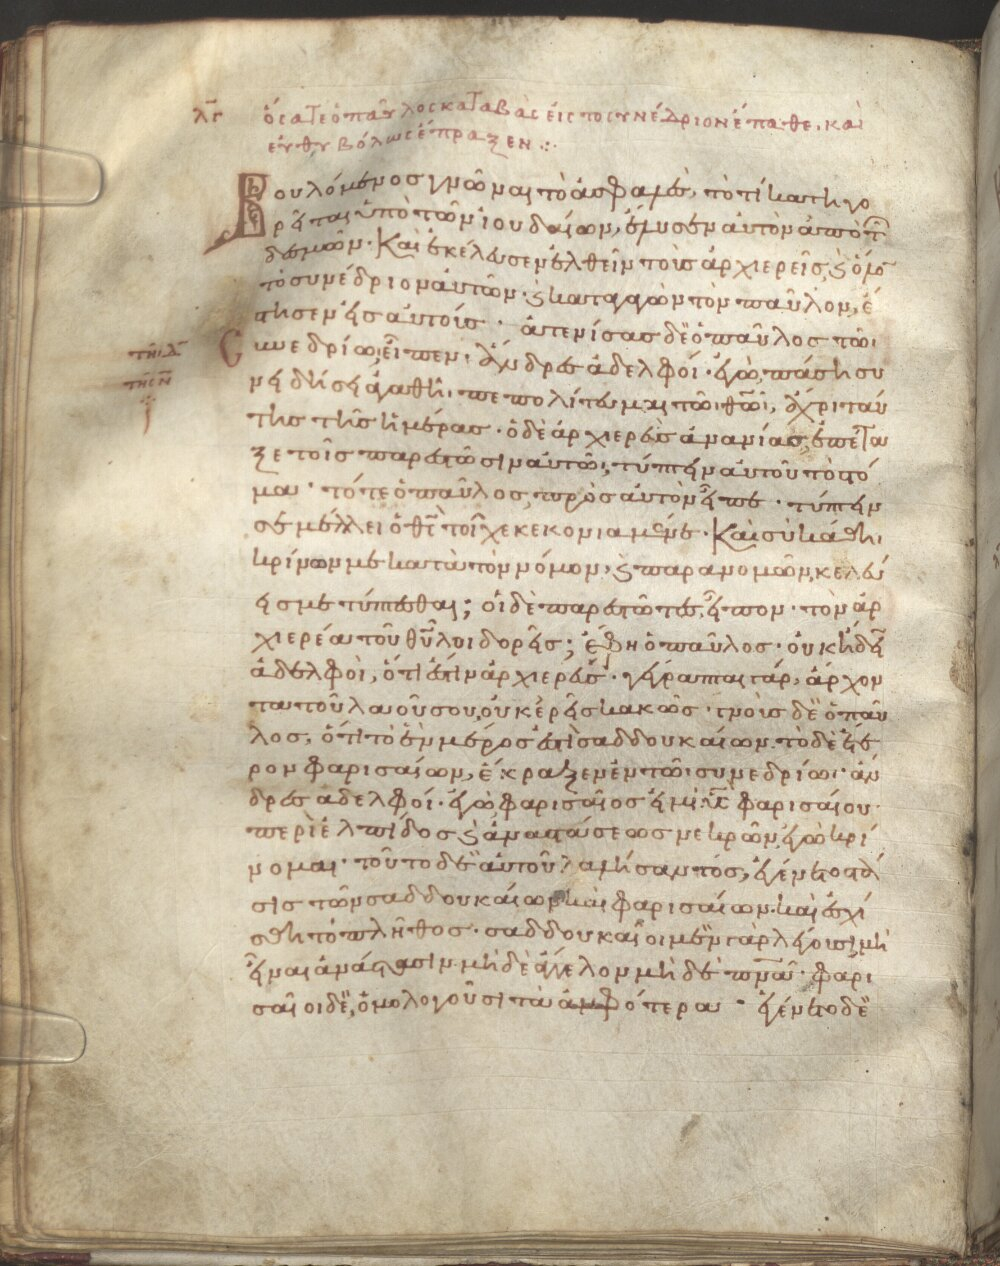 λγ ὅσα τε ὁ παῦλος καταβὰς εἰς το συνέδριον ἔπαθε. καὶ
εὐθυβόλως ἔπραξεν :·
Βουλόμενος γνῶναι τὸ ἀσφαλὲς, τὸ τί κατηγο
ρεῖται ὑπὸ τῶν ἰουδαίων, ἔλυσεν αὐτὸν ἀπὸ τῶν
δεσμῶν· Καὶ ἐκέλευσεν ἐλθεῖν τοὺς ἀρχιερεῖς, ϗ ὅλον
τὸ συνέδριον αὐτῶν· ϗ καταγαγὼν τὸν παῦλον, ἔ
στησεν εἰς αὐτούς· ἀτενίσας δὲ ὁ παῦλος τῶι
Συνεδρίω, εἶπεν· ἄνδρες ἀδελφοί· ἐγὼ πάση συ
νειδήσει ἀγαθῆ, πεπολίτευμαι τῶι θῶι, ἄχρι ταύ
της τῆς ἡμέρας· ὁ δὲ ἀρχιερεὺς ἀνανίας, ἐπέτα
ξε τοῖς παρεστῶσιν αὐτῶι, τύπτειν αὐτοῦ τὸ στό
μα· τότε ὁ παῦλος, πρὸς αὐτὸν εἶπε· τύπτειν
σὲ μέλλει ὁ θς τοῖχε κεκονιαμένε· Καὶ σὺ κάθη
κρίνων με κατὰ τὸν νόμον, ϗ παρανομῶν, κελεύ
εις με τύπτεσθαι; οἱ δὲ παρεστῶτες, εἶπον· τὸν ἀρ
χιερέα τοῦ θυ λοιδορεῖς; ἔφη ὁ παῦλος· οὐκ ἤδειν
ἀδελφοὶ, ὅτι ἐστὶν ἀρχιερεύς· γέγραπται γάρ, ἄρχον
τα τοῦ λαοῦ σου, οὐκ ἐρεῖς κακῶς· γνοὺς δὲ ὁ παῦ
λος, ὅτι τὸ ἓν μέρος ἐστὶ σαδδουκαίων. τὸ δὲ ἕτε
ρον φαρισαίων, ἔκραξεν ἐν τῶι συνεδρίωι· ἄν
δρες ἀδελφοί· ἐγὼ φαρισαῖος εἰμὶ υς φαρισαίου·
περὶ ἐλπίδος ϗ ἀναστάσεως νεκρῶν, ἐγὼ κρί
νομαι· τοῦτο δὲ αὐτοῦ λαλήσαντος, ἐγένετο στά
σις τῶν σαδδουκαίων καὶ φαρισαίων. καὶ ἐσχί
σθη τὸ πλῆθος· σαδδουκαῖοι μὲν γὰρ λέγουσι, μὴ
εἶναι ἀνάστασιν μηδὲ ἄγγελον μηδὲ πνα· φαρι
σαῖοι δὲ, ὁμολογοῦσι τὰ ἀμφότερα· ἐγένετο δὲ